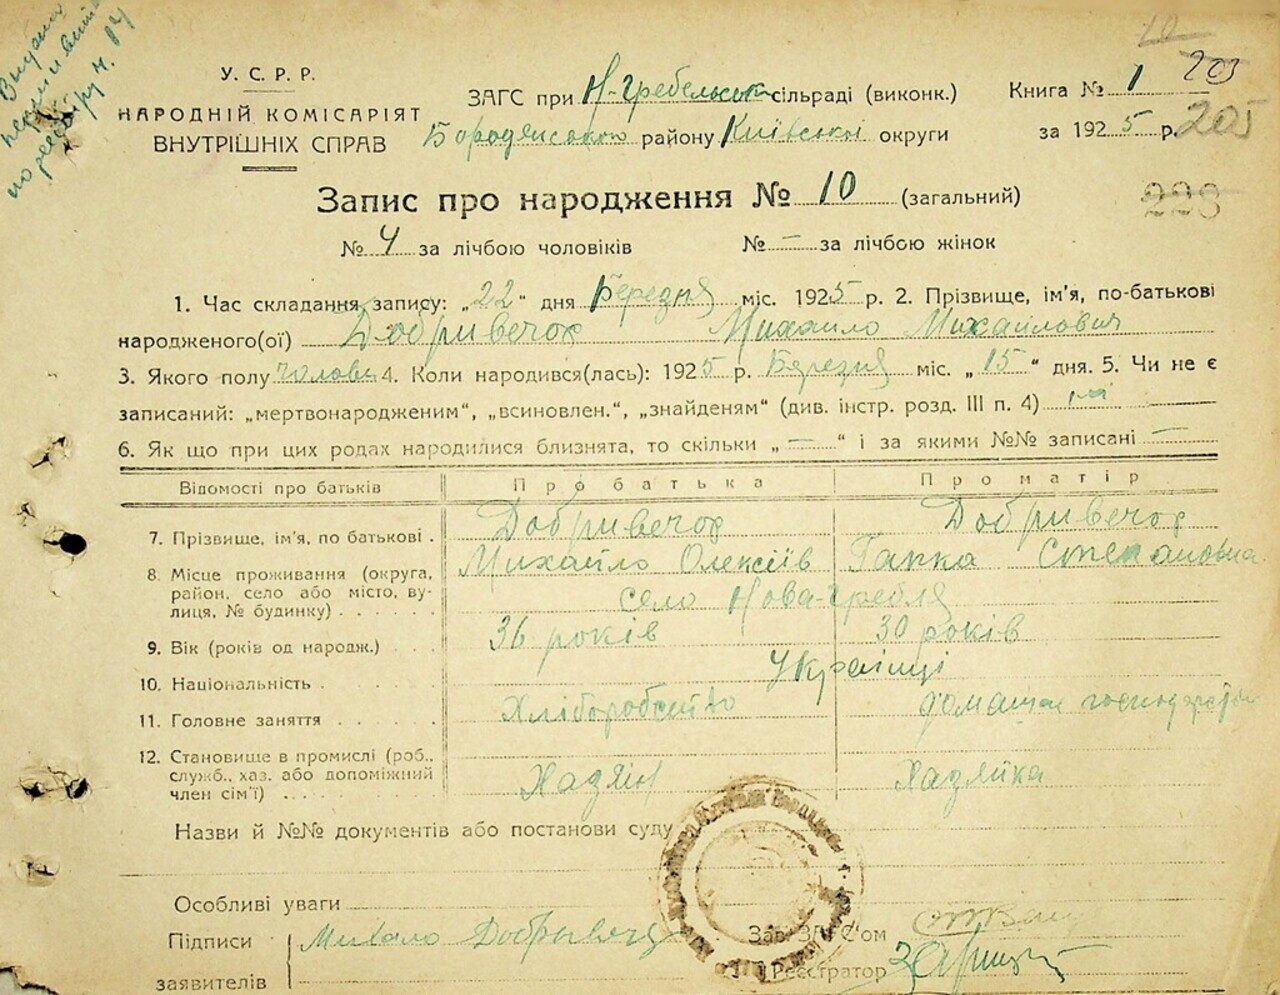 У. С. Р. Р.
НАРОДНІЙ КОМІСАРІЯТ
ВНУТРІШНІХ СПРАВ
ЗАГС при Н-Гребельська сільраді (виконк.)
Бородянського району Київської округи
Книга № 1 203
за 1925 р. 205
Запис про народження № 10 (загальний)
228
№ 4 за лічбою чоловіків № — за лічбою жінок
1. Час складання запису: „22" дня Березня міс. 1925 р. 2. Прізвище, ім'я, по-батькові
народженого(ої) Добривечор Михайло Михайлович
3. Якого полу чолові 4. Коли народився(лась): 1925 р. Березня міс. „15" дня. 5. Чи не є
записаний: „мертвонародженим", „всиновлен.", „знайденям" (див. інстр. розд. III п. 4)
6. Як що при цих родах народилися близнята, то скільки „—" і за якими №№ записані —
Відомості про батьків Про батька Про матір
7. Прізвище, ім'я, по батькові . Добривечор Добривечор
Михайло Олексіїв Гапка Степановна
8. Місце проживання (округа, район, село або місто, ву-
лиця, № будинку) . . . . . . село Нова-Гребля
9. Вік (років од народж.) . . . 36 років 30 років
10. Національність . . . . . . Українці
11. Головне заняття . . . . . . Хліборобство домашнє господарство
12. Становище в промислі (роб.,
служб., хаз. або допоміжний
член сім'ї) . . . . . . . . Хадяїн Хадяйка
Назви й №№ документів або постанови суду
Особливі уваги
Підписи
заявителів
Михало Добрывеча
Зав. ЗАГС'ом
Реєстратор